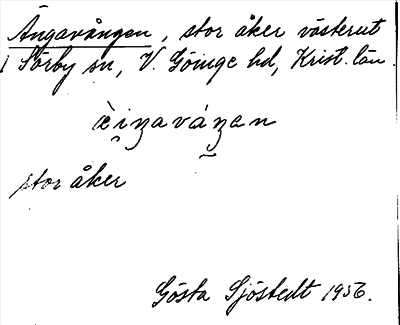 Ängavången, stor åker västerut
i Sörby sn, V. Göinge hd, Krist. län.
stor åker
Gösta Sjöstedt 1956.